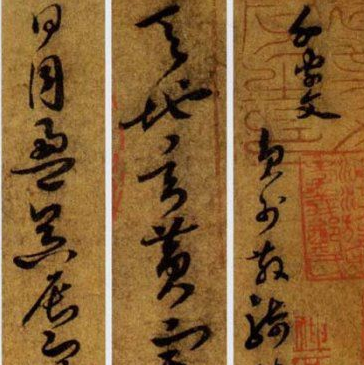 千字文
員外散騎
天地玄黃宇
日月盈昃辰